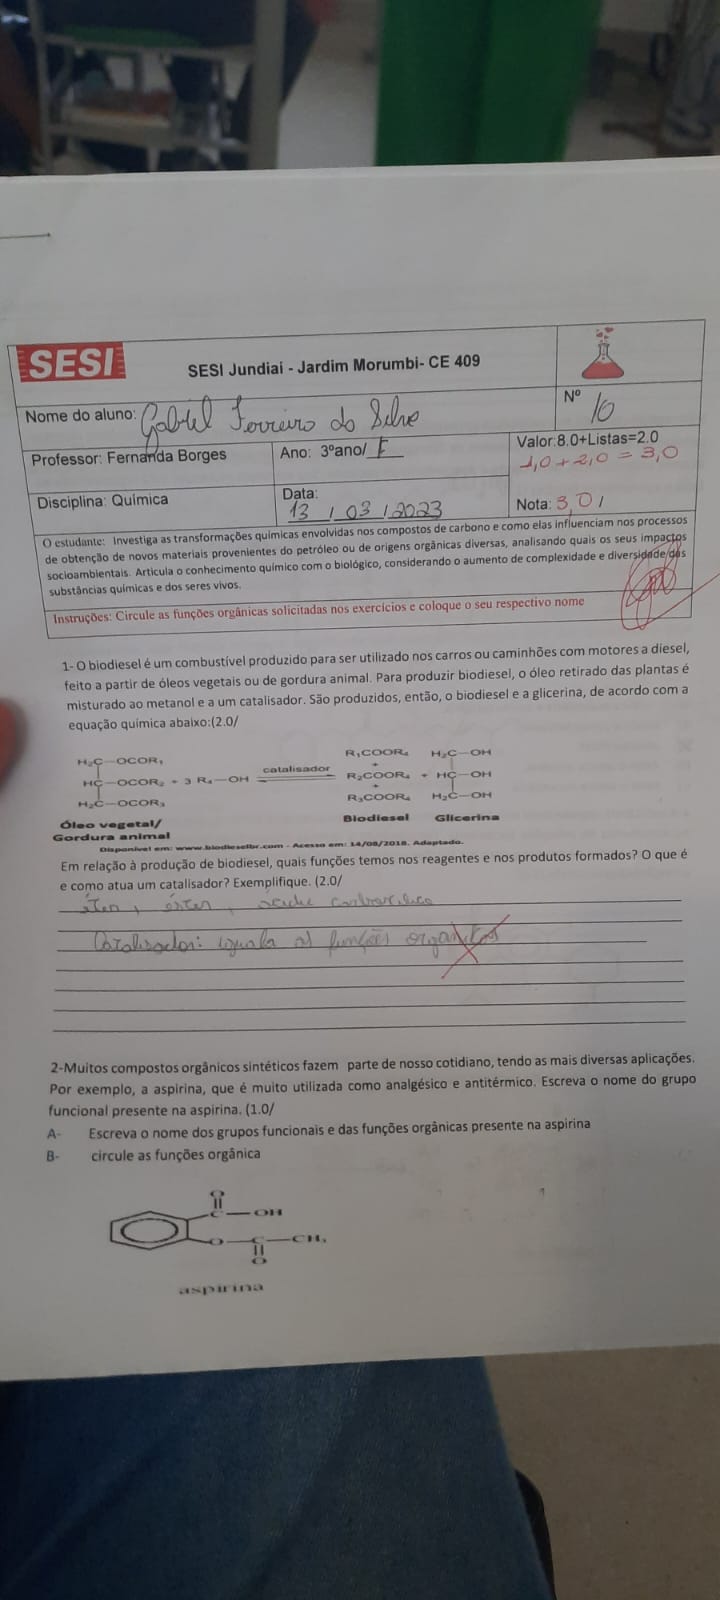 SESI
SESI Jundiai - Jardim Morumbi- CE 409
Nome do aluno: Gabriel Ferreira da Silva
Nº 10
Professor: Fernanda Borges
Ano: 3ºano/ E
Valor:8.0+Listas=2.0
1,0 + 2,0 = 3,0
Disciplina: Química
Data:
13 / 03 / 2023
Nota: 3,0 /
O estudante: Investiga as transformações químicas envolvidas nos compostos de carbono e como elas influenciam nos processos
de obtenção de novos materiais provenientes do petróleo ou de origens orgânicas diversas, analisando quais os seus impactos
socioambientais. Articula o conhecimento químico com o biológico, considerando o aumento de complexidade e diversidade das
substâncias químicas e dos seres vivos.
Instruções: Circule as funções orgânicas solicitadas nos exercícios e coloque o seu respectivo nome
1- O biodiesel é um combustível produzido para ser utilizado nos carros ou caminhões com motores a diesel,
feito a partir de óleos vegetais ou de gordura animal. Para produzir biodiesel, o óleo retirado das plantas é
misturado ao metanol e a um catalisador. São produzidos, então, o biodiesel e a glicerina, de acordo com a
equação química abaixo:(2.0/
H₂C—OCOR₁
HC—OCOR₂ + 3 R₄—OH
H₂C—OCOR₃
catalisador
R₁COOR₄
+
R₂COOR₄
+
R₃COOR₄
+
H₂C—OH
HC—OH
H₂C—OH
Óleo vegetal/
Gordura animal
Biodiesel
Glicerina
Disponível em: www.biodieselbr.com - Acesso em: 14/08/2018. Adaptado.
Em relação à produção de biodiesel, quais funções temos nos reagentes e nos produtos formados? O que é
e como atua um catalisador? Exemplifique. (2.0/
éter, éster,
Catalisador: iguala as funções organicas
2-Muitos compostos orgânicos sintéticos fazem parte de nosso cotidiano, tendo as mais diversas aplicações.
Por exemplo, a aspirina, que é muito utilizada como analgésico e antitérmico. Escreva o nome do grupo
funcional presente na aspirina. (1.0/
A- Escreva o nome dos grupos funcionais e das funções orgânicas presente na aspirina
B- circule as funções orgânica
O
C—OH
O—C—CH₃
O
aspirina